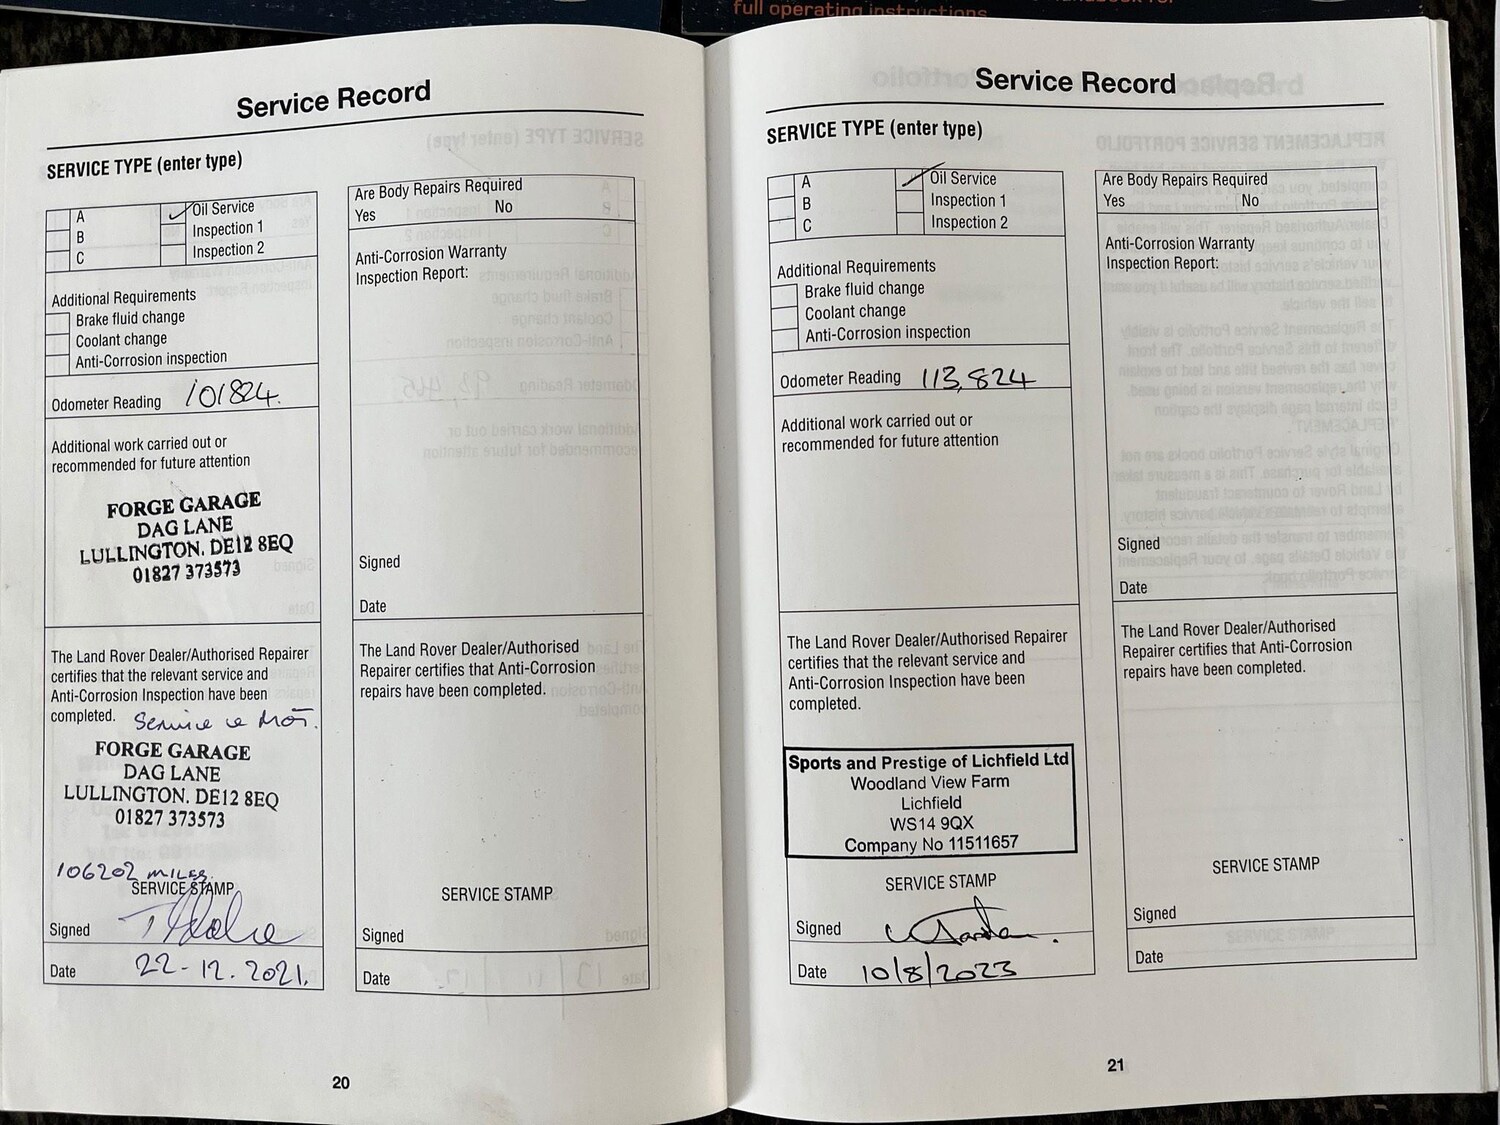 full operating instructions
Service Record
SERVICE TYPE (enter type)
A
B
C
Oil Service
Inspection 1
Inspection 2
Additional Requirements
Brake fluid change
Coolant change
Anti-Corrosion inspection
Odometer Reading 101824.
Additional work carried out or
recommended for future attention
FORGE GARAGE
DAG LANE
LULLINGTON. DE12 8EQ
01827 373573
The Land Rover Dealer/Authorised Repairer
certifies that the relevant service and
Anti-Corrosion Inspection have been
completed. Service & MOT.
FORGE GARAGE
DAG LANE
LULLINGTON. DE12 8EQ
01827 373573
106202 MILES.
SERVICE STAMP
Signed
Date 22-12.2021.
Are Body Repairs Required
Yes No
Anti-Corrosion Warranty
Inspection Report:
Signed
Date
The Land Rover Dealer/Authorised
Repairer certifies that Anti-Corrosion
repairs have been completed.
SERVICE STAMP
Signed
Date
20
Service Record
SERVICE TYPE (enter type)
A
B
C
Oil Service
Inspection 1
Inspection 2
Additional Requirements
Brake fluid change
Coolant change
Anti-Corrosion inspection
Odometer Reading 113,824
Additional work carried out or
recommended for future attention
The Land Rover Dealer/Authorised Repairer
certifies that the relevant service and
Anti-Corrosion Inspection have been
completed.
Sports and Prestige of Lichfield Ltd
Woodland View Farm
Lichfield
WS14 9QX
Company No 11511657
SERVICE STAMP
Signed
Date 10/8/2023
Are Body Repairs Required
Yes No
Anti-Corrosion Warranty
Inspection Report:
Signed
Date
The Land Rover Dealer/Authorised
Repairer certifies that Anti-Corrosion
repairs have been completed.
SERVICE STAMP
Signed
Date
21